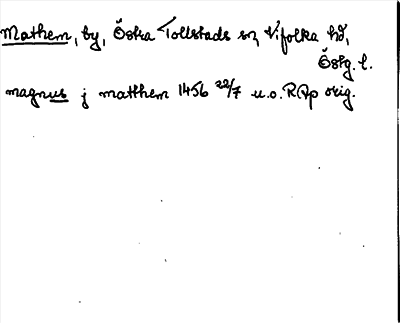 Mathem, by, Östra Tollstads sn, Vifolka hd,
Östg. l.
magnus j matthem 1456 22/7 u.o. RAp orig.